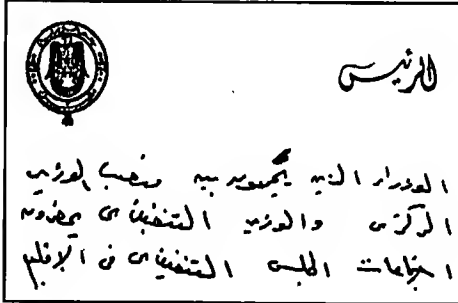 الرئيس
الوزراء الذين يجمعون بين منصب الوزير
المركزى والوزير التنفيذى يحضرون
اجتماعات المجلس التنفيذى فى الاقليم